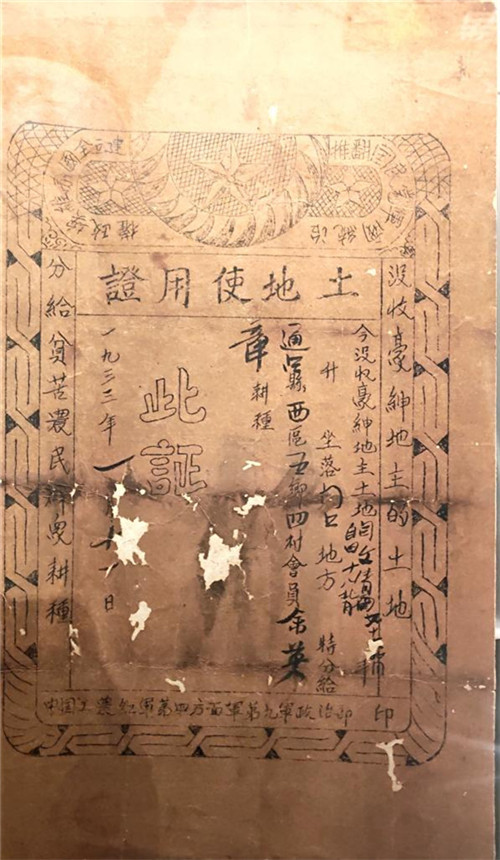 推翻国民党軍閥統治
土地使用證
沒收豪紳地主的土地
今沒收豪紳地主土地
升 坐落 口地方 特分給
通江縣西區五鄉四村會員余英
章耕種
此証
一九三三年一月十 日
分給貧苦農民群眾耕種
中国工農紅軍第四方面軍第九軍政治部 印